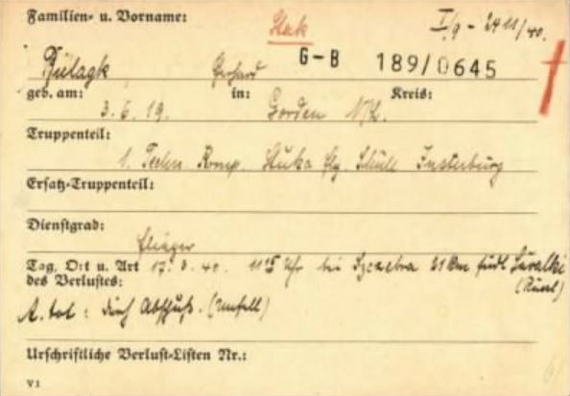 Familien- u. Vorname:
I/9 - 24 11/40.
G-B 189/0645
Gerhard
geb. am: in: Kreis:
3. 6. 19. Gorden N/L.
Truppenteil:
1. Techn. Komp. Stuka Flg. Schule Insterburg
Ersatz-Truppenteil:
Dienstgrad:
Flieger
Tag, Ort u. Art 17. 40. 11 15 Uhr bei Szczebra 21 Km südl. Suwalki
des Verlustes:
A. tot: durch Abschuß. (Unfall)
Urschriftliche Verlust-Listen Nr.:
V1